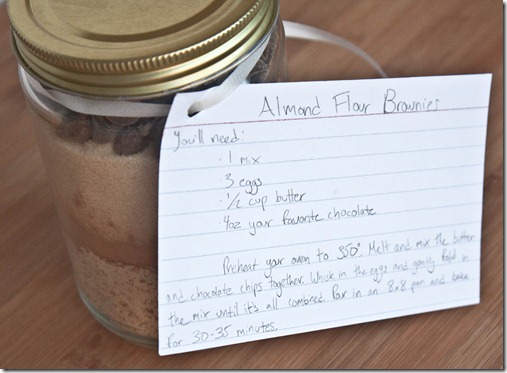 Almond Flour Brownies
You'll need:
· 1 mix
3 eggs
· 1/2 cup butter
4oz your favorite chocolate
Preheat your oven to 350°. Melt and mix the butter
and chocolate chips together. Whisk in the eggs and gently fold in
the mix until it's all combined. Pour in an 8x8 pan and bake
for 30-35 minutes.